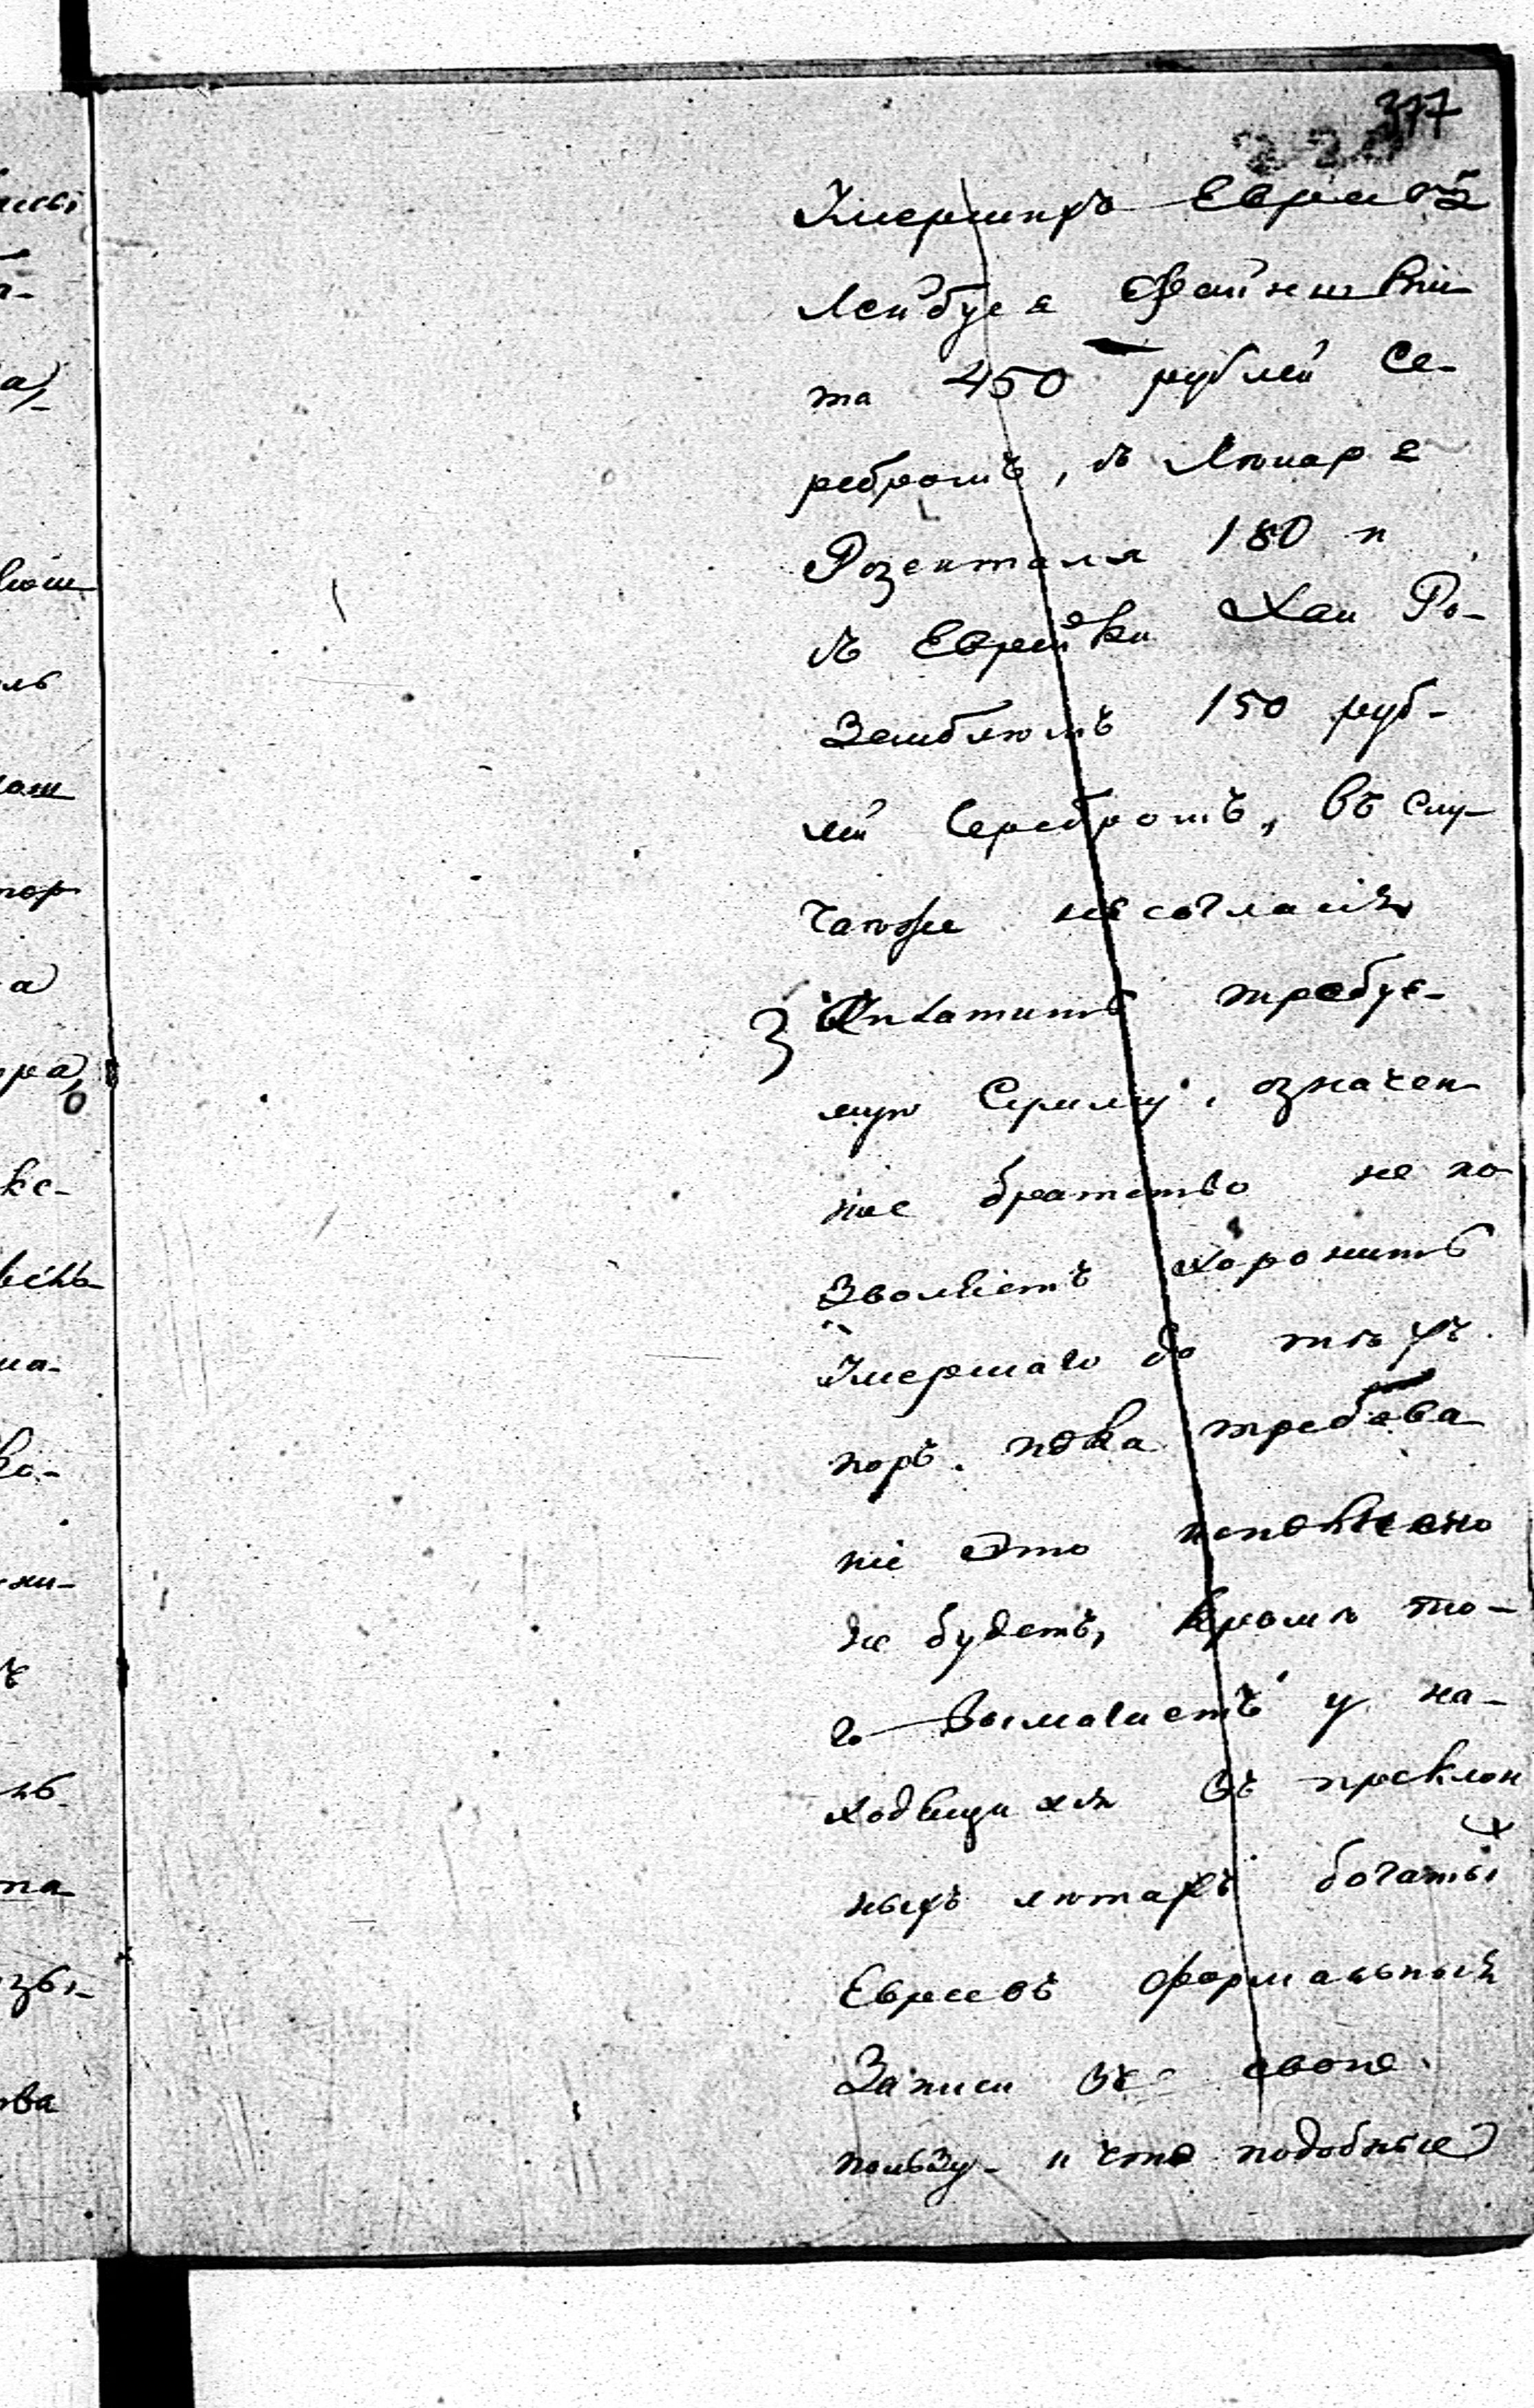 377
220
Умершихъ Евреевъ
Лейбуса
та 450 рублей се-
ребромъ, съ Лемара
Розенталя 180 и
съ Еврейки Хаи Ро-
зенблюмъ 150 руб-
лей серебромъ, въ слу-
чаюже несогласія
заплатить требуе-
мую Сумму, означен
ное братство не по
зволяетъ хоронить
умершаго до тѣхъ
поръ, пока требова
ніе это исполнено
не будетъ, кромѣ то-
го вымогаетъ у на-
ходящихся въ преклон
ныхъ лѣтахъ богатых
Евреевъ формальныя
Записи въ свою
пользу и что подобные